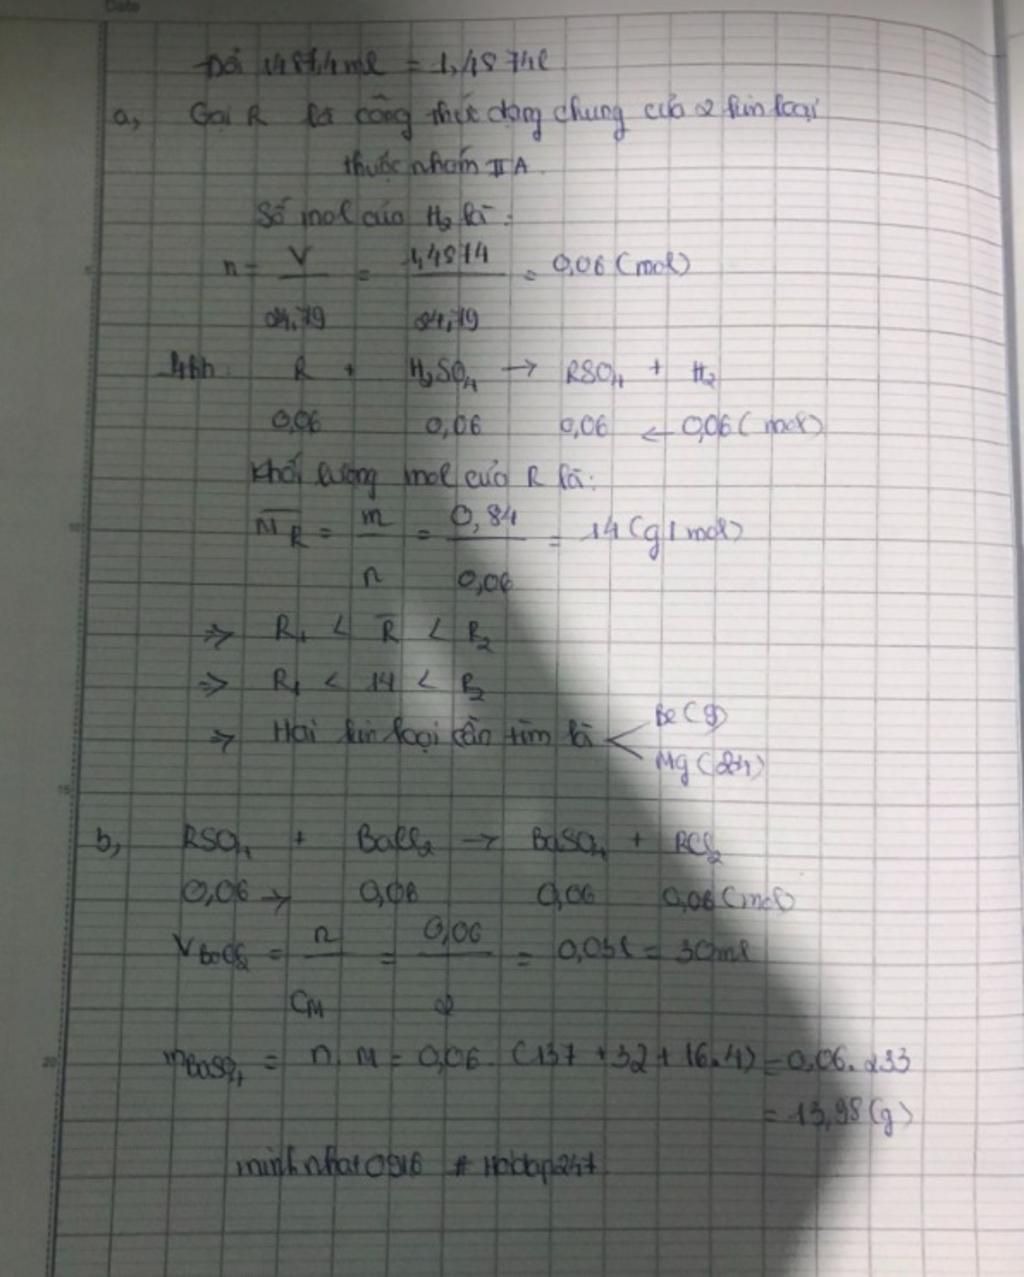 Date
Đổi 1487,4ml = 1,4874l
a, Gọi R là công thức dạng chung của 2 kim loại
thuộc nhóm IIA.
Số mol của H₂ là:
n = V / 24,79 = 1,4874 / 24,79 = 0,06 (mol)
R + H₂SO₄ → RSO₄ + H₂
0,06 0,06 0,06 ← 0,06 (mol)
Khối lượng mol của R là:
M̅_R = m / n = 0,84 / 0,06 = 14 (g/mol)
⇒ R₁ < R̅ < R₂
⇒ R₁ < 14 < R₂
⇒ Hai kim loại cần tìm là < Be (9)
Mg (24)
b, RSO₄ + BaCl₂ → BaSO₄ + RCl₂
0,06 → 0,06 0,06 0,06 (mol)
V BaCl₂ = n / C_M = 0,06 / 2 = 0,03l = 30ml
m BaSO₄ = n. M = 0,06. (137 + 32 + 16.4) = 0,06. 233
= 13,98 (g)
minhnhat0916 # Hoidap247
5
10
15
20